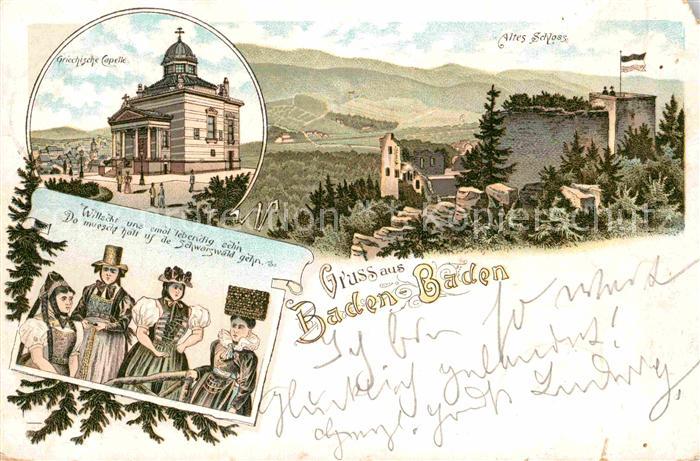 Griechische Capelle.
Altes Schloss
Willscht uns emol lebendig sehn
Do muescht halt uf de Schwarzwald gehn.
Gruss aus
Baden Baden
Ich bin so weit
glücklich gelandet!
Ludwig